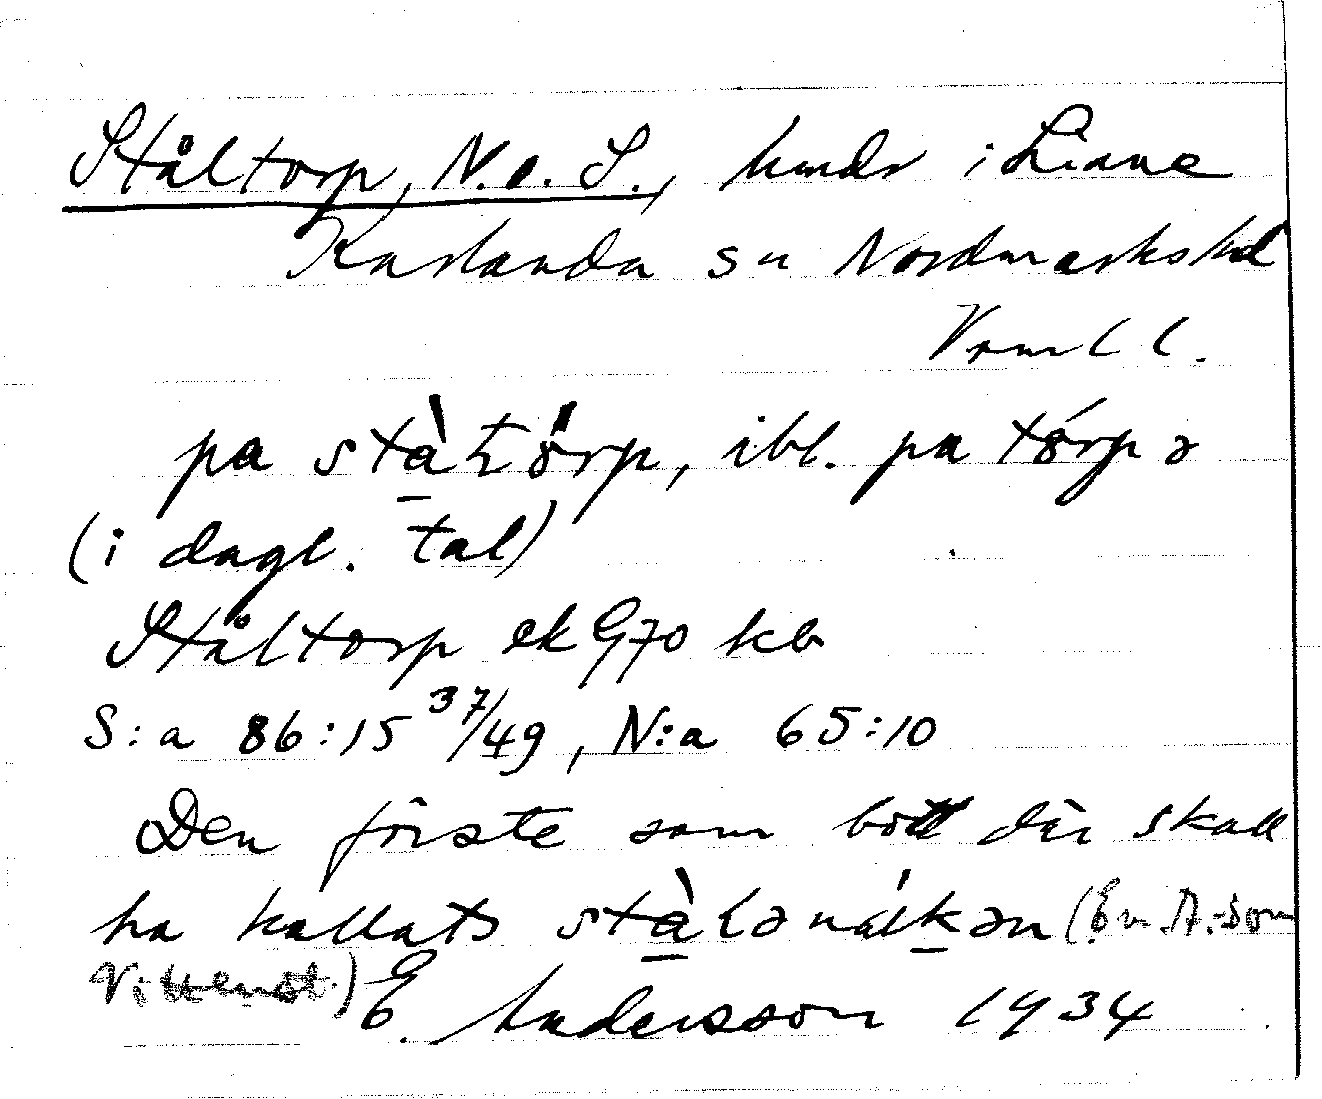 Ståltorp, N. o. S., hmdr i Liane
Karlanda sn Nordmarks hd
Vrml l.
pa stàtörp, ibl. pa tórpə
(i dagl. tal)
Ståltorp ek G70 kb
S:a 86:15 37/49, N:a 65:10
Den förste som bott där skall
ha kallats stàlənálkən (En A.-son
Vittenst.) E. Andersson 1934